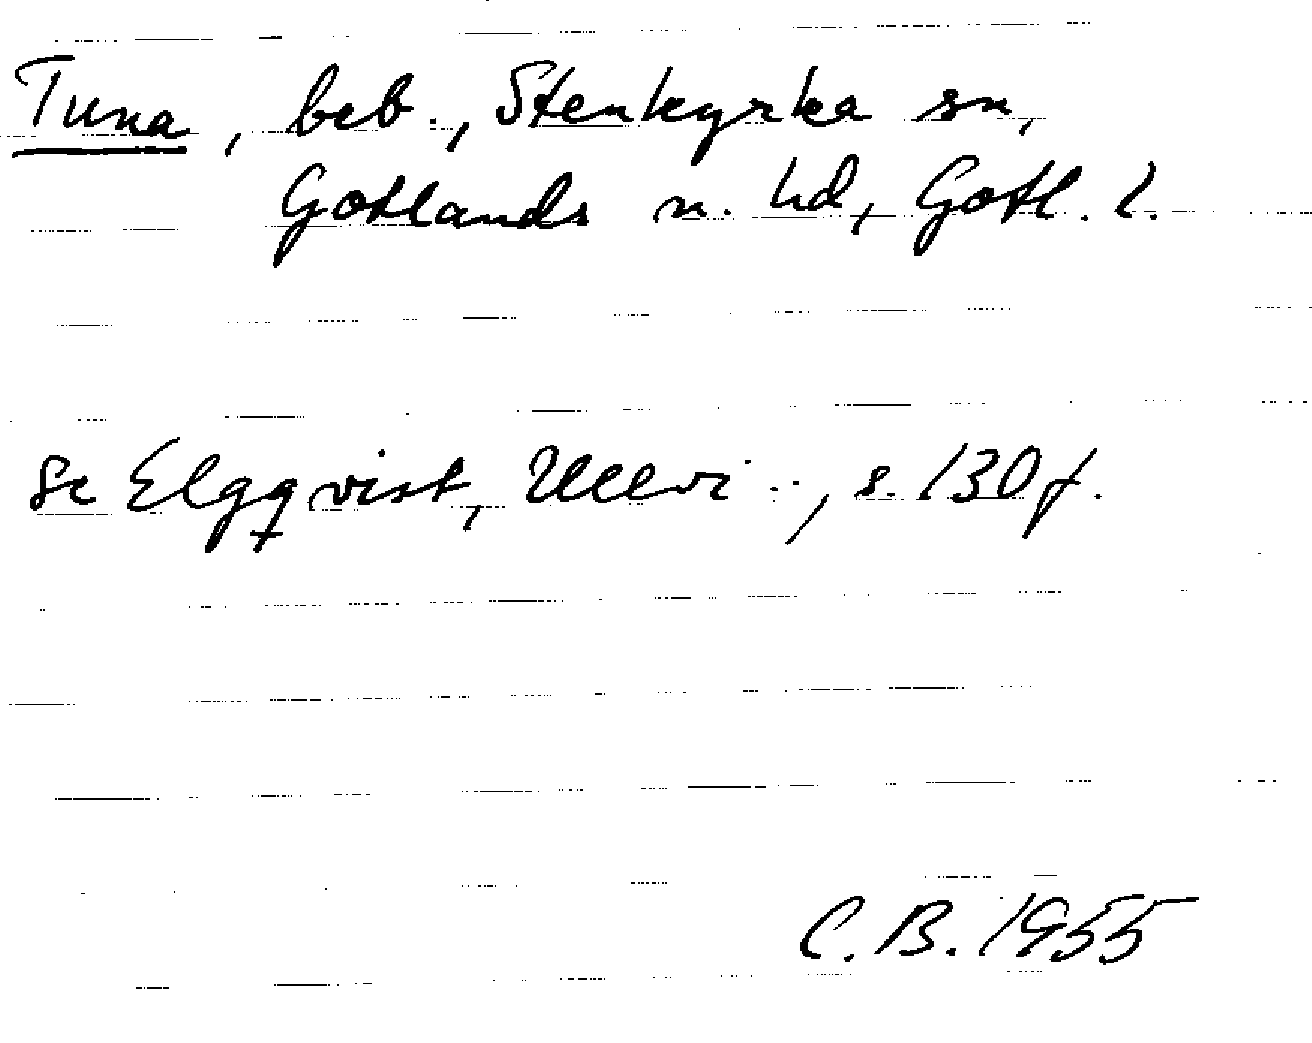 Tuna, beb., Stenkyrka sn,
Gotlands n. hd, Gotl. l.
Se Elgqvist, Ullvi.., s. 130 f.
C. B. 1955